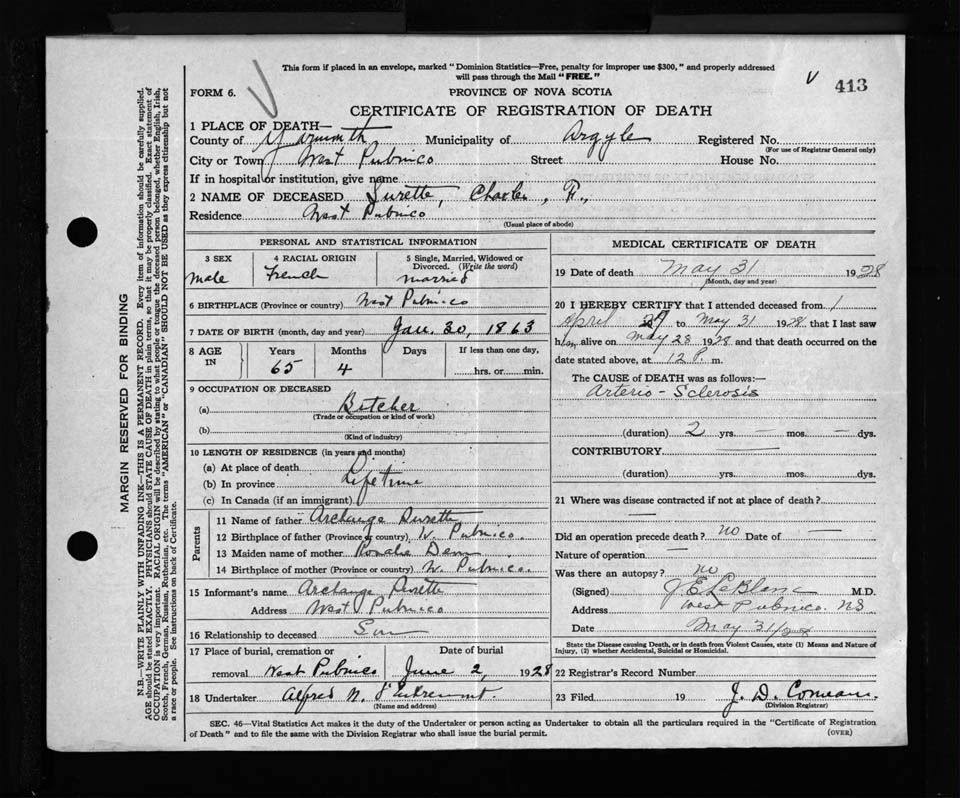 This form if placed in an envelope, marked "Dominion Statistics—Free, penalty for improper use $300," and properly addressed
will pass through the Mail "FREE."
v 413
FORM 6. PROVINCE OF NOVA SCOTIA
CERTIFICATE OF REGISTRATION OF DEATH
1 PLACE OF DEATH
County of Yarmouth Municipality of Argyle Registered No.
(For use of Registrar General only)
City or Town West Pubnico Street House No.
If in hospital or institution, give name
2 NAME OF DECEASED Surette, Charles, F.,
Residence West Pubnico
(Usual place of abode)
PERSONAL AND STATISTICAL INFORMATION
3 SEX 4 RACIAL ORIGIN 5 Single, Married, Widowed or
Divorced. (Write the word)
Male French Married
6 BIRTHPLACE (Province or country) West Pubnico
7 DATE OF BIRTH (month, day and year) Jan. 30, 1863
8 AGE IN Years Months Days If less than one day,
65 4 hrs. or min.
9 OCCUPATION OR DECEASED
(a) Betcher
(Trade or occupation or kind of work)
(b)
(Kind of industry)
10 LENGTH OF RESIDENCE (in years and months)
(a) At place of death
(b) In province Lifetime
(c) In Canada (if an immigrant)
Parents
11 Name of father Archange Surette
12 Birthplace of father (Province or country) W. Pubnico.
13 Maiden name of mother Rosalie
14 Birthplace of mother (Province or country) W. Pubnico.
15 Informant's name Archange Surette
Address West Pubnico
16 Relationship to deceased Son
17 Place of burial, cremation or Date of burial
removal West Pubnico June 2, 1928
18 Undertaker Alfred N. d'Entremont.
(Name and address)
MEDICAL CERTIFICATE OF DEATH
19 Date of death May 31 1928
(Month, day and year)
20 I HEREBY CERTIFY that I attended deceased from
April 29 to May 31 1928 that I last saw
him alive on May 28 1928 and that death occurred on the
date stated above, at 12 P. m.
The CAUSE of DEATH was as follows:—
Arterio-Sclerosis
(duration) 2 yrs. — mos. — dys.
CONTRIBUTORY.
(duration) yrs. mos. dys.
21 Where was disease contracted if not at place of death?
Did an operation precede death? no Date of —
Nature of operation —
Was there an autopsy? no
(Signed) J E LeBlanc M.D.
Address West Pubnico. NS
Date May 31/28
State the Disease causing Death, or in death from Violent Causes, state (1) Means and Nature of
Injury, (2) whether Accidental, Suicidal or Homicidal.
22 Registrar's Record Number
23 Filed 19 J. D. Comeau.
(Division Registrar)
SEC. 46—Vital Statistics Act makes it the duty of the Undertaker or person acting as Undertaker to obtain all the particulars required in the "Certificate of Registration
of Death" and to file the same with the Division Registrar who shall issue the burial permit.
(OVER)
MARGIN RESERVED FOR BINDING
N.B.—WRITE PLAINLY WITH UNFADING INK—THIS IS A PERMANENT RECORD. Every item of information should be carefully supplied.
AGE should be stated EXACTLY. PHYSICIANS should STATE CAUSE OF DEATH in plain terms, so that it may be properly classified. Exact statement of
OCCUPATION is very important. RACIAL ORIGIN will be described by stating to what people or tongue the deceased person belonged, whether English, Irish,
Scotch, French, German, Russian, Ruthenian, etc. The terms "AMERICAN" or "CANADIAN" SHOULD NOT BE USED as they express citizenship but not
a race or people. See instructions on back of Certificate.